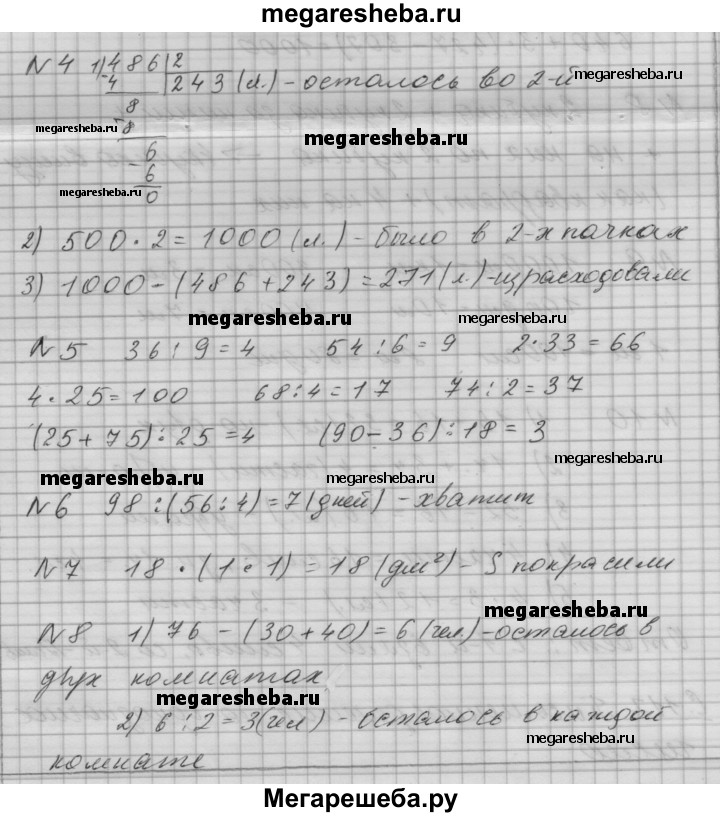 megaresheba.ru
N 4 1) 486 | 2
4 243 (л.) - осталось во 2-й
8
megaresheba.ru 8 megaresheba.ru
6
megaresheba.ru 6
0
2) 500 · 2 = 1000 (л.) - было в 2-х пачках
3) 1000 - (486 + 243) = 271 (л.) - израсходовали
megaresheba.ru megaresheba.ru
N 5 36 : 9 = 4 54 : 6 = 9 2 · 33 = 66
4 · 25 = 100 68 : 4 = 17 74 : 2 = 37
(25 + 75) : 25 = 4 (90 - 36) : 18 = 3
megaresheba.ru
megaresheba.ru megaresheba.ru
N 6 98 : (56 : 4) = 7 (дней) - хватит
N 7 18 · (1 · 1) = 18 (дм²) - S покрасили
megaresheba.ru
N 8 1) 76 - (30 + 40) = 6 (чел) - осталось в
двух комнатах
megaresheba.ru
2) 6 : 2 = 3 (чел) - осталось в каждой
megaresheba.ru
комнате
Мегарешеба.ру